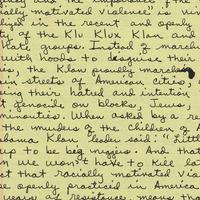 cially motivated violence" is
in the recent and openly
ty of the Klu Klux Klan and
hate groups. Instead of
with hoods to disguise their
the Klan proudly marched
in streets of American cities,
ing their hatred and intention
t genocide on blocks, Jews,
minorities. When asked by a
the murders of the Children of A
homa Klan leader said: "Little
up to be big niggers. And that
n we won't have to kill la
t that racially motivated
e openly practiced in America
years of resistance, means tha